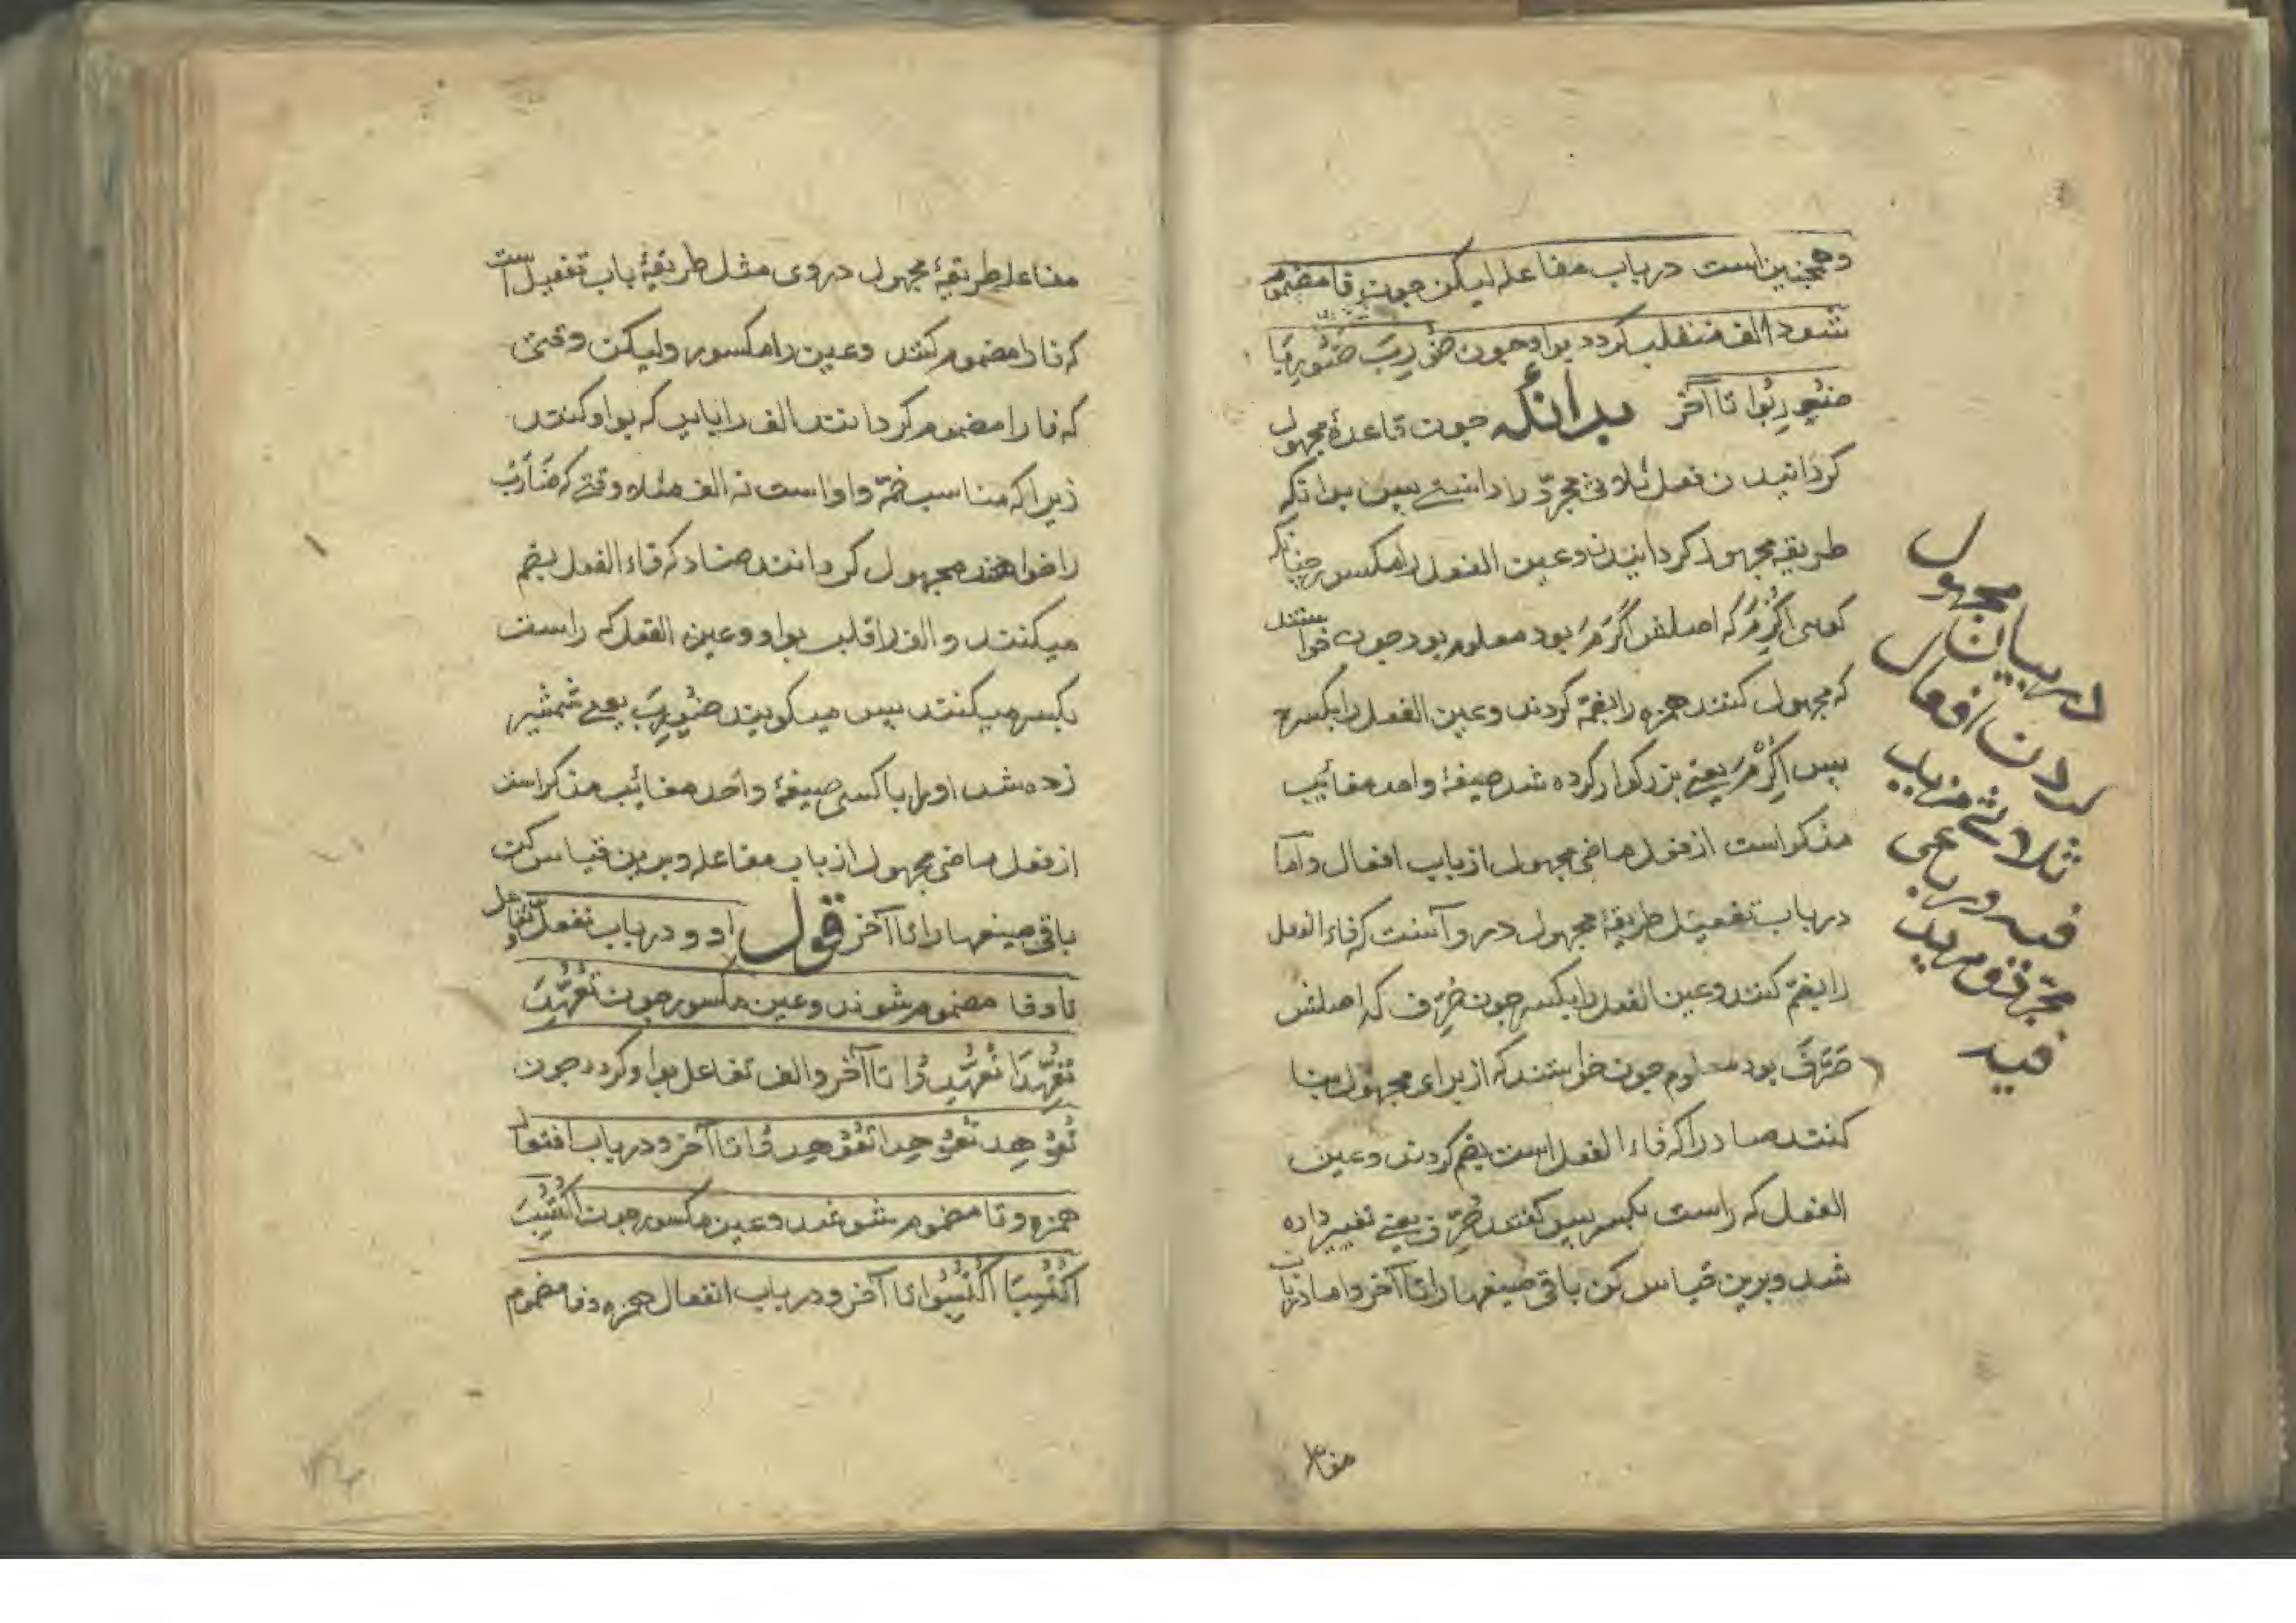 وهمچنین است در باب مفاعله لیکن چون فا مضموم
شود الف منقلب گردد بواو چون ضُورِبَ ضُورِبَا
ضُورِبُوا تا آخر بدانکه چون قاعدهٔ مجهول
کردانیدن فعل ثلاثی مجرّد را دانستی پس بدانکه
طریقه مجهول کردانیدن وعین الفعل را مکسور چنانکه
کویی اُکْرِمَ که اصلش اَکْرَمَ بود معلوم بود چون خواستند
که مجهول کنند همزه را بضمّه کردند وعین الفعل را بکسره
پس اُکْرِمَ یعنی بزرکوار کرده شد صیغهٔ واحد مغائیب
مذکر است از فعل ماضی مجهول از باب افعال واما
در باب تفعیل طریقهٔ مجهول در و آنست که فاء الفعل
را بضمّ کنند وعین الفعل را بکسر چون صُرِّف که اصلش
صَرَّفَ بود معلوم چون خواستند که از برای مجهول بنا
کنند صاد را که فاء الفعل است بضم کردند وعین
الفعل که راست بکسر پس کفتند صُرِّف یعنی تغییر داده
شد وبرین قیاس کن باقی صیغها را تا آخر واما در باب
در بیان مجهول
کردن افعال
ثلاثی مزید
فیه ورباعی
مجرّد ومزید
فیه
مفا
مفاعله طریقهٔ مجهول در وی مثل طریقهٔ باب تفعیل است
که فا را مضموم کنند وعین را مکسور ولیکن وقتی
که فا را مضموم کردانند الف را باید که بواو کنند
زیرا که مناسب ضمّه واو است نه الف مثلا وقتی که ضَارَبَ
را خواهند مجهول کردانند ضاد که فاء الفعل بضم
میکنند والف را قلب بواو وعین الفعل که راست
بکسره میکنند پس میکویند ضُورِبَ یعنی شمشیر
زده شد او را با کسی صیغهٔ واحد مغائب مذکر است
از فعل ماضی مجهول از باب مفاعله وبرین قیاس کن
باقی صیغها را تا آخر قول او ودر باب تفعل وتفاعل
تا وفا مضموم شوند وعین مکسور چون تُعُهِّدَ
تُعُهِّدَا تُعُهِّدُوا تا آخر والف تفاعل بواو کردد چون
تُعُوهِدَ تُعُوهِدَا تُعُوهِدُوا تا آخر ودر باب افتعال
همزه وتا مضموم شوند وعین مکسور چون اُکْتُسِبَ
اُکْتُسِبَا اُکْتُسِبُوا تا آخر ودر باب انفعال همزه وفا مضموم